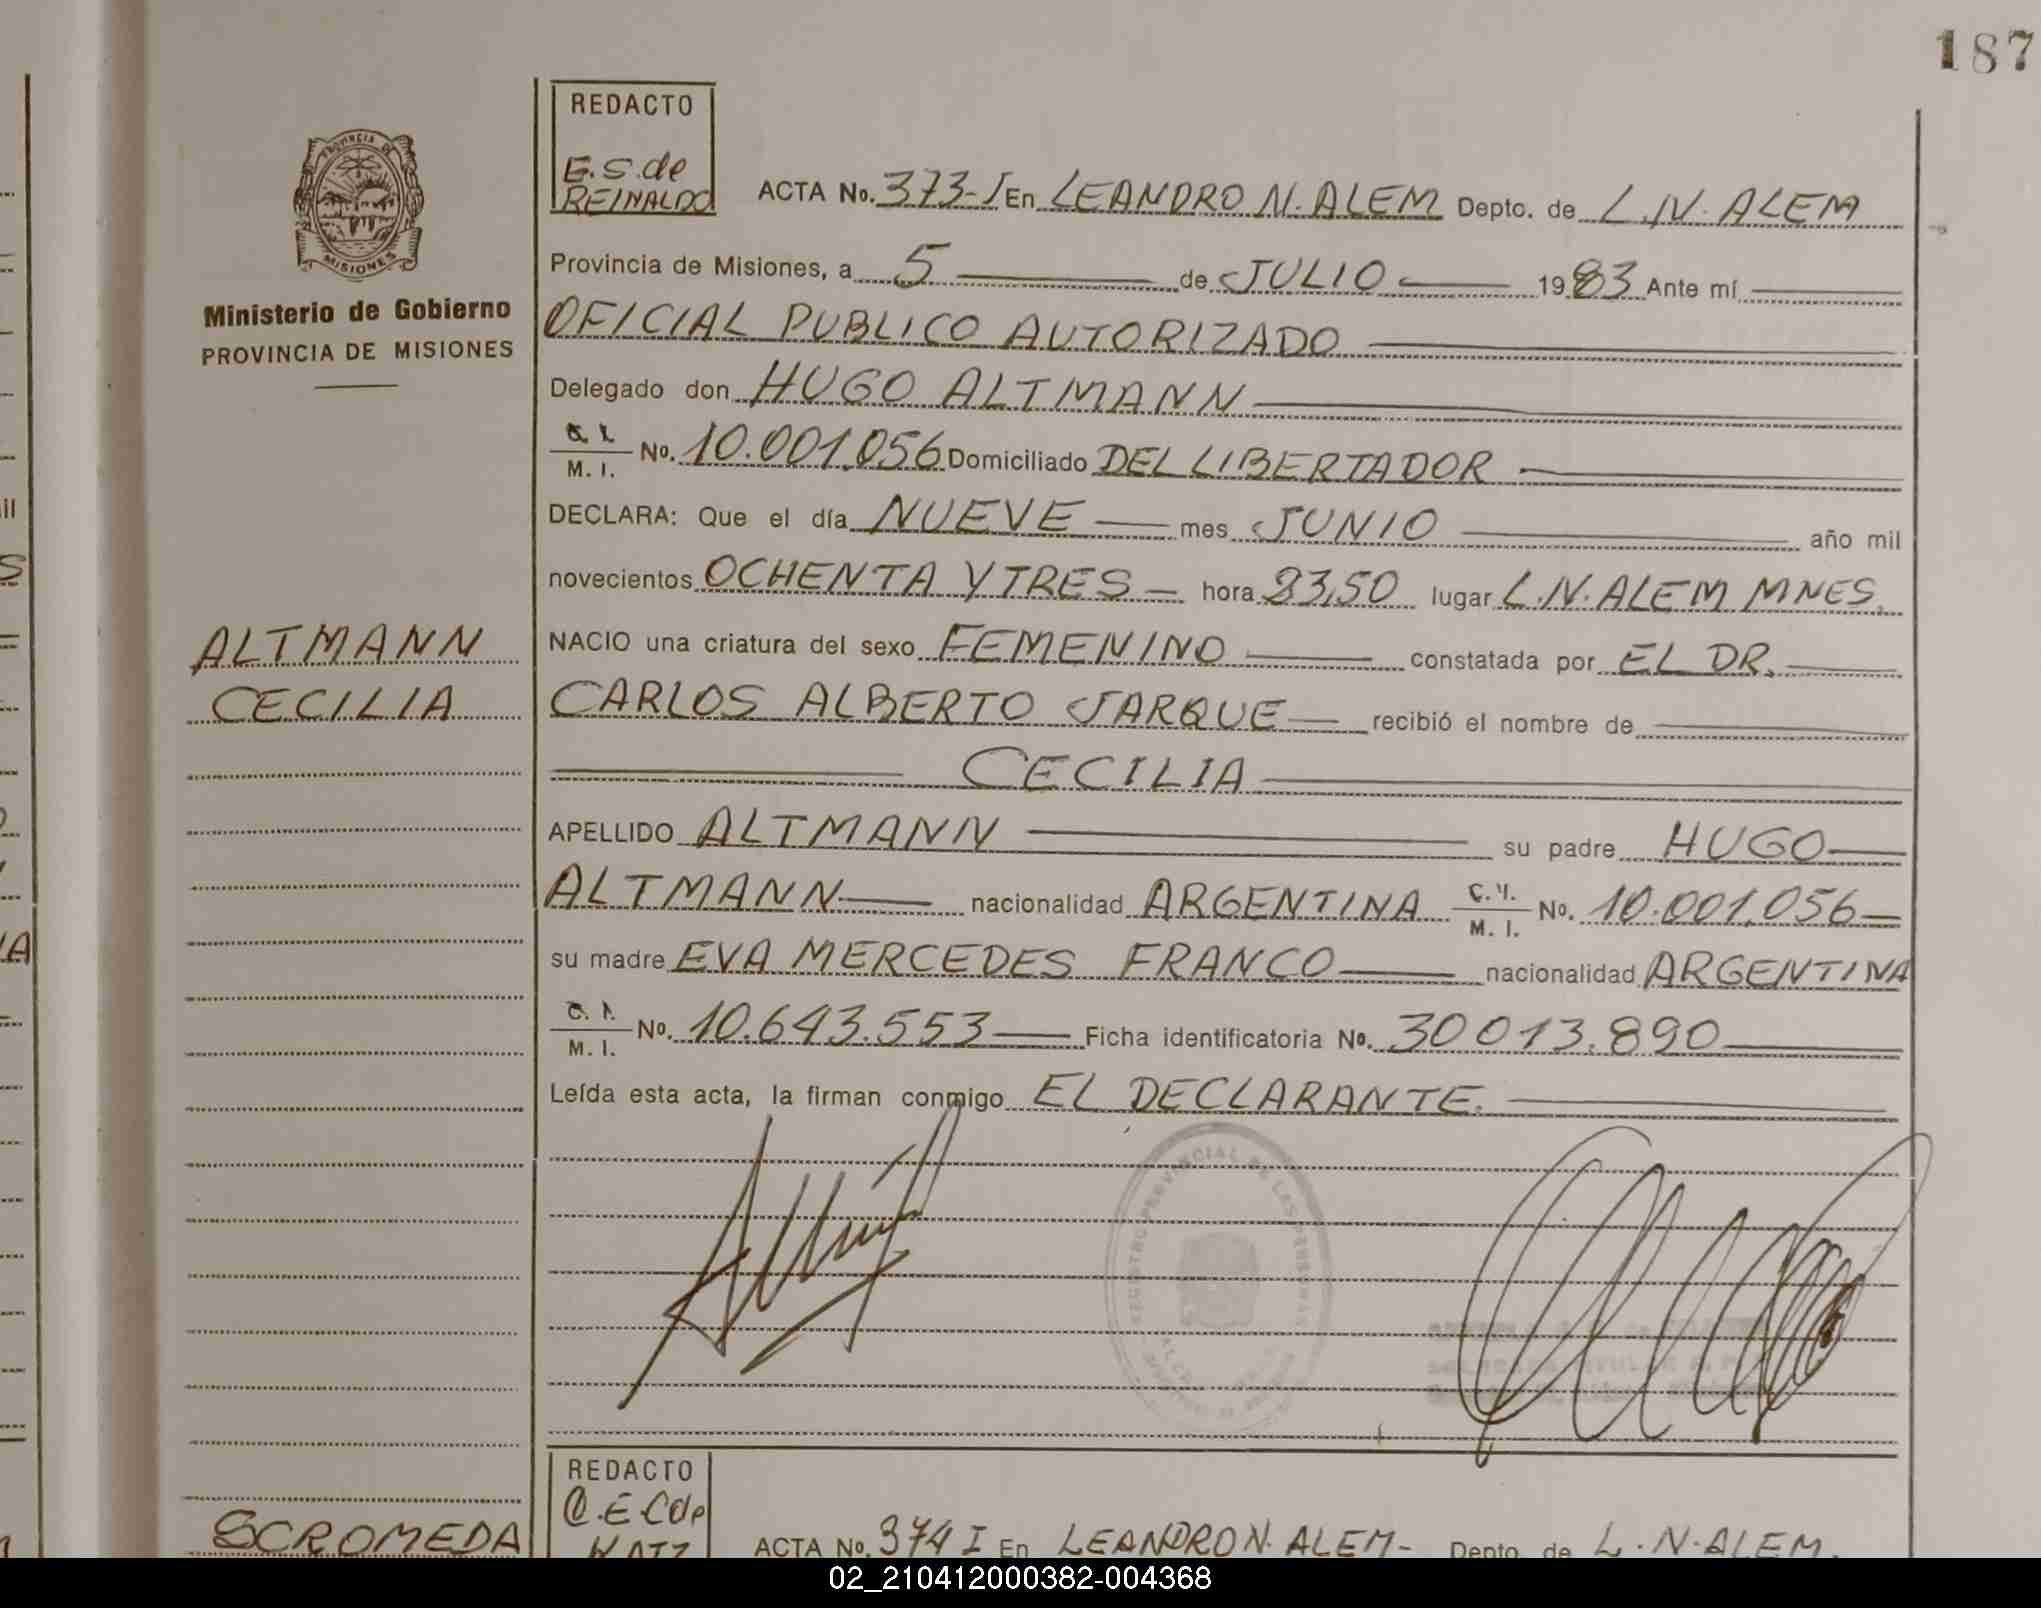 187
REDACTO
E.S. de
REINALDO
PROVINCIA DE
MISIONES
Ministerio de Gobierno
PROVINCIA DE MISIONES
ACTA No. 373-I En LEANDRO N. ALEM Depto. de L.N. ALEM
Provincia de Misiones, a 5 de JULIO 1983 Ante mí
OFICIAL PUBLICO AUTORIZADO
Delegado don HUGO ALTMANN
M. I. No. 10.001.056 Domiciliado DEL LIBERTADOR
DECLARA: Que el día NUEVE mes JUNIO año mil
novecientos OCHENTA Y TRES hora 23,50 lugar L.N. ALEM MNES.
NACIO una criatura del sexo FEMENINO constatada por EL DR.
CARLOS ALBERTO JARQUE recibió el nombre de
CECILIA
APELLIDO ALTMANN su padre HUGO
ALTMANN nacionalidad ARGENTINA C.I. M. I. No. 10.001.056
su madre EVA MERCEDES FRANCO nacionalidad ARGENTINA
C. I. M. I. No. 10.643.553 Ficha identificatoria No. 30013.890
Leída esta acta, la firman conmigo EL DECLARANTE.
ALTMANN
CECILIA
REGISTRO PROVINCIAL DE LAS PERSONAS
REDACTO
ACTA No. 374 I En LEANDRO N. ALEM- Depto de L.N. ALEM.
SCROMEDA
02_210412000382-004368